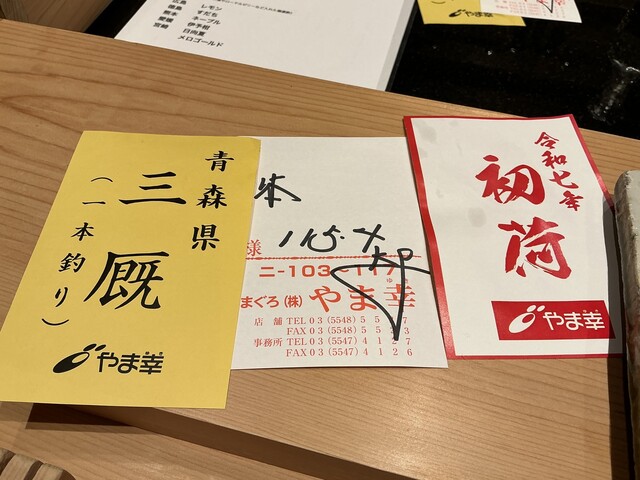 広島 レモン
徳島 すだち
熊本 ネーブル
愛媛 伊予柑
宮崎 日向夏
メロゴールド
やま幸
青森県
三厩
(一本釣り)
やま幸
本
様 115.4
ニ-103~117
まぐろ(株) やま幸
店舗 TEL 03(5548)5527
FAX 03(5548)5523
事務所 TEL 03(5547)4127
FAX 03(5547)4126
令和七年
初荷
やま幸